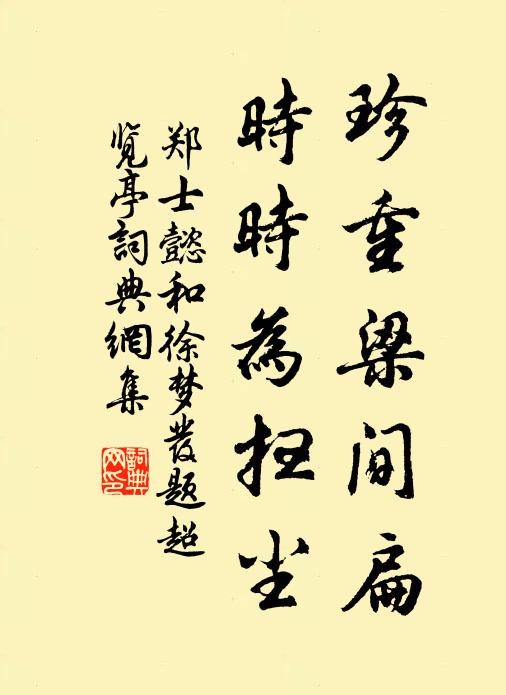 珍重梁间扁
時時為扫尘
郑士懿和徐梦发题超
览亭詞典網集
詞典
网印